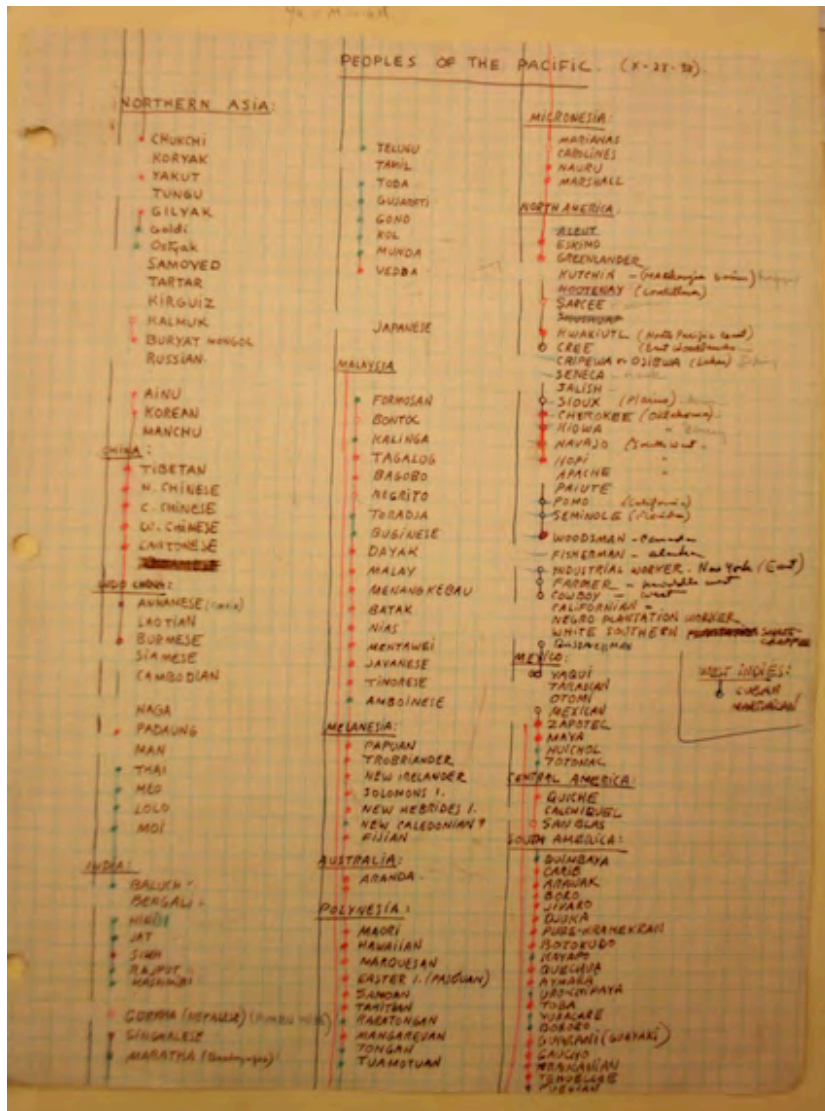 PEOPLES OF THE PACIFIC. (X-28-38).
NORTHERN ASIA:
CHUKCHI
KORYAK
YAKUT
TUNGU
GILYAK
Goldi
Ostyak
SAMOYED
TARTAR
KIRGUIZ
KALMUK
BURYAT MONGOL
RUSSIAN
AINU
KOREAN
MANCHU
CHINA:
TIBETAN
N. CHINESE
C. CHINESE
W. CHINESE
CANTONESE
INDO CHINA:
ANNAMESE
LAOTIAN
BURMESE
SIAMESE
CAMBODIAN
NAGA
PADAUNG
MAN
THAI
MEO
LOLO
MOI
INDIA:
BALUCH
BENGALI
HINDI
JAT
SIKH
RAJPUT
KASHMIRI
GORKHA (NEPALESE)
SINGHALESE
MARATHA
TELUGU
TAMIL
TODA
GUJARATI
GOND
KOL
MUNDA
VEDDA
JAPANESE
MALAYSIA
FORMOSAN
BONTOC
KALINGA
TAGALOG
BAGOBO
NEGRITO
TORADJA
BUGINESE
DAYAK
MALAY
MENANGKEBAU
BATAK
NIAS
MENTAWEI
JAVANESE
TIMORESE
AMBOINESE
MELANESIA:
PAPUAN
TROBRIANDER
NEW IRELANDER
SOLOMONS I.
NEW HEBRIDES I.
NEW CALEDONIAN ?
FIJIAN
AUSTRALIA:
ARANDA
POLYNESIA:
MAORI
HAWAIIAN
MARQUESAN
EASTER I. (PASQUAN)
SAMOAN
TAHITIAN
RARATONGAN
MANGAREVAN
TONGAN
TUAMOTUAN
MICRONESIA:
MARIANAS
CAROLINES
NAURU
MARSHALL
NORTH AMERICA:
ALEUT
ESKIMO
GREENLANDER
KUTCHIN
KOOTENAY (Cordillera)
SARCEE
KWAKIUTL (North Pacific Coast)
CREE (East Woodlands
CHIPEWA or OJIBWA (Lakes)
SENECA
SALISH
SIOUX (Plains)
CHEROKEE (Oklahoma)
KIOWA "
NAVAJO (Southwest
HOPI "
APACHE "
PAIUTE
POMO (California)
SEMINOLE (Florida)
WOODSMAN - Canada
FISHERMAN - alaska
INDUSTRIAL WORKER - New York (East)
FARMER - middle west
COWBOY - West
CALIFORNIAN -
NEGRO PLANTATION WORKER
WHITE SOUTHERN
MEXICO:
YAQUI
TARASCAN
OTOMI
MEXICAN
ZAPOTEC
MAYA
HUICHOL
TOTONAC
CENTRAL AMERICA:
QUICHE
CALCHIQUEL
SAN BLAS
SOUTH AMERICA:
QUIMBAYA
CARIB
ARAWAK
BORO
JIVARO
DJUKA
PURE-KRAMEKRAN
BOTOKUDO
KAYAPO
QUECHUA
AYMARA
URO-CHIPAYA
TOBA
YURACARE
BORORO
GUARANI (GUAYAKI)
GAUCHO
ARAUKANIAN
TEHUELCHE
FUEGIAN
WEST INDIES:
CUBAN